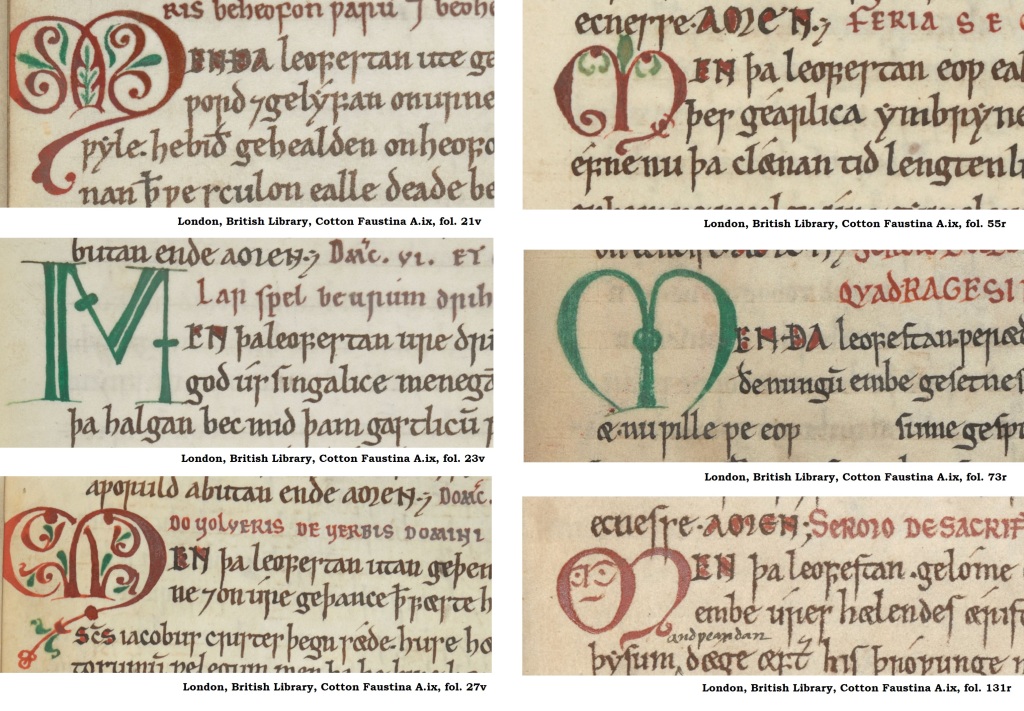 RIS beheofon
MENDA leofestan ute ge
pord ⁊gelyfan onurne
pyle. hebið gehealden onheofo
nan ealle deade be
London, British Library, Cotton Faustina A.ix, fol. 21v
butan ende AMEN.
Lar spel beurum drih
MEN þaleofestan ure dri
god us singalice menegā
þa halgan bec mid þam gastlicū
London, British Library, Cotton Faustina A.ix, fol. 23v
abutan ende AMEN.
DE VERBIS DOMINI
MEN þa leofestan utan geþen
ne ⁊on ure geþance
sc̄s iacobus
London, British Library, Cotton Faustina A.ix, fol. 27v
ecnesse. AMEN. FERIA SEC
MEN þa leofestan eop eal
þer gearlica ymbryne
efne nu þa clǽnan tid lengten
London, British Library, Cotton Faustina A.ix, fol. 55r
QVADRAGESI
MENDA leofestan
embe gesetnes
æ. nu pille pe eop sume
London, British Library, Cotton Faustina A.ix, fol. 73r
ecnesse. AMEN; SERMO DE SACRIF
MEN þa leofestan . gelome
embe ures hælendes ærist
andpeardan
þysum dæge his þropunge
London, British Library, Cotton Faustina A.ix, fol. 131r